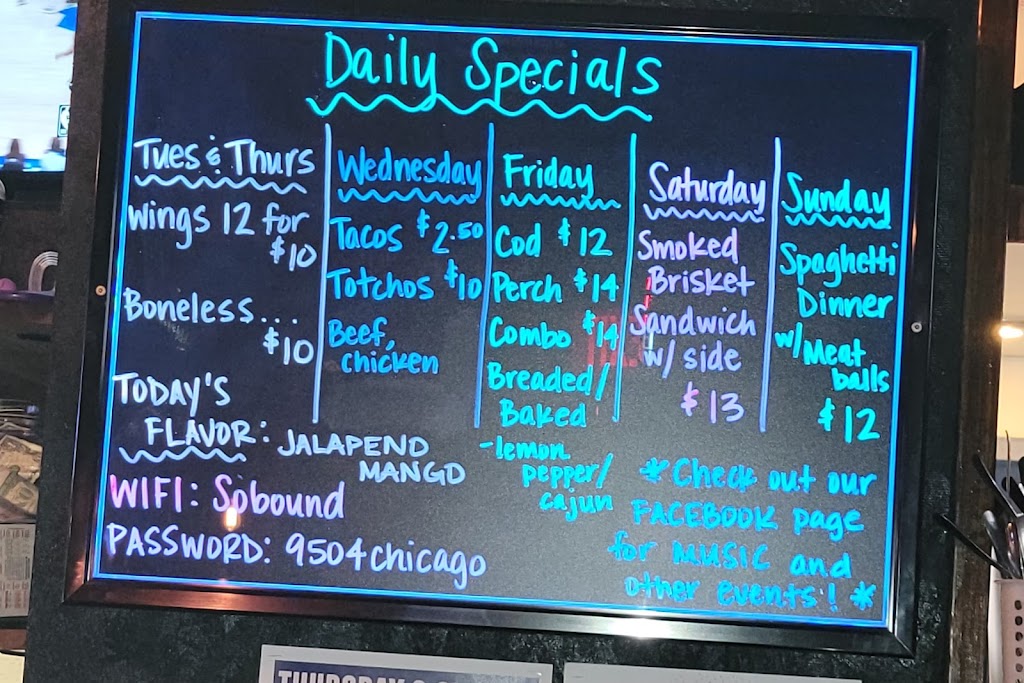 Daily Specials
Tues & Thurs
Wings 12 for
$10
Boneless...
$10
Wednesday
Tacos $2.50
Totchos $10
Beef,
chicken
Friday
Cod $12
Perch $14
Combo $14
Breaded/
Baked
-lemon
pepper/
cajun
Saturday
Smoked
Brisket
Sandwich
w/ side
$13
Sunday
Spaghetti
Dinner
w/ Meat
balls
$12
TODAY'S
FLAVOR: JALAPENO
MANGO
WIFI: Sobound
PASSWORD: 9504chicago
*Check out our
FACEBOOK page
for MUSIC and
other events! *